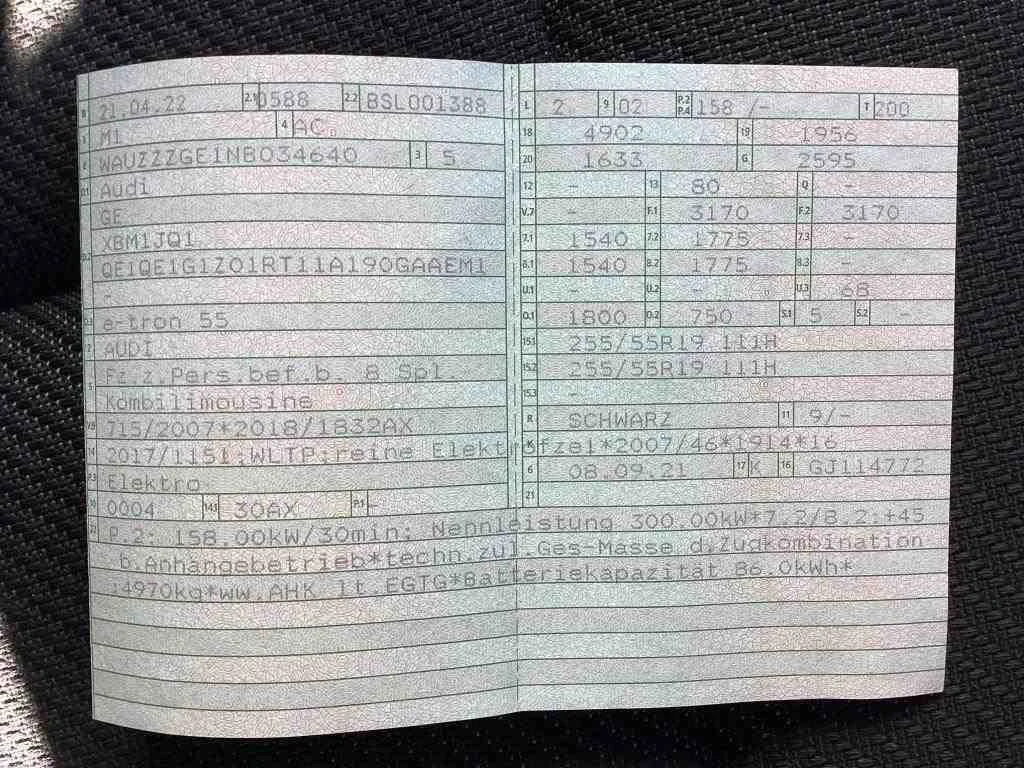 B 21.04.22 2.1 0588 2.2 BSL001388
J M1 4 AC
E WAUZZZGE1NB034640 3 5
D.1 Audi
GE
D.2 XBM1JQ1
QE1QE1G1Z01RT11A190GAAEM1
-
D.3 e-tron 55
2 AUDI
5 Fz.z.Pers.bef.b. 8 Spl.
Kombilimousine
V.9 715/2007*2018/1832AX
14 2017/1151;WLTP;reine Elektrofze1
P.3 Elektro
10 0004 14.1 30AX P.1 -
L 2 9 02 P.2 P.4 158 /- T 200
18 4902 19 1956
20 1633 G 2595
12 - 13 80 Q -
V.7 - F.1 3170 F.2 3170
7.1 1540 7.2 1775 7.3 -
8.1 1540 8.2 1775 8.3 -
U.1 - U.2 - U.3 68
O.1 1800 O.2 750 S.1 5 S.2 -
15.1 255/55R19 111H
15.2 255/55R19 111H
15.3 -
R SCHWARZ 11 9/-
K e1*2007/46*1914*16
6 08.09.21 17 K 16 GJ114772
21
22 P.2: 158.00kW/30min; Nennleistung 300.00kW*7.2/8.2:+45
b.Anhängebetrieb*techn.zul.Ges-Masse d.Zugkombination
:4970kg*ww.AHK lt.EGTG*Batteriekapazität 86.0kWh*